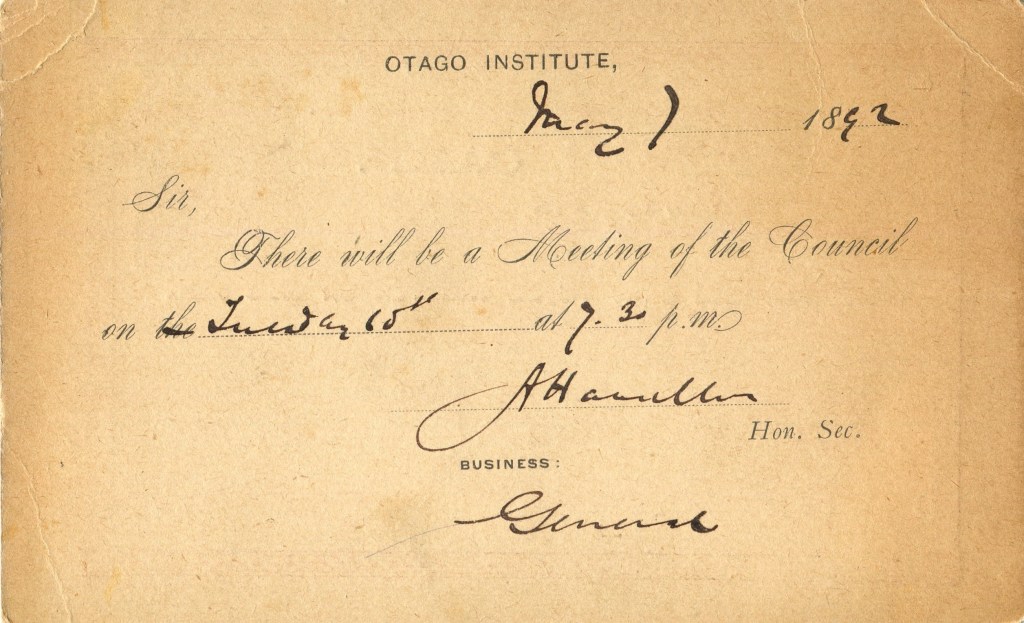 OTAGO INSTITUTE,
May 7 1892
Sir,
There will be a Meeting of the Council
on the Tuesday 10th at 7.30 p.m.
A Hamilton
Hon. Sec.
BUSINESS:
General